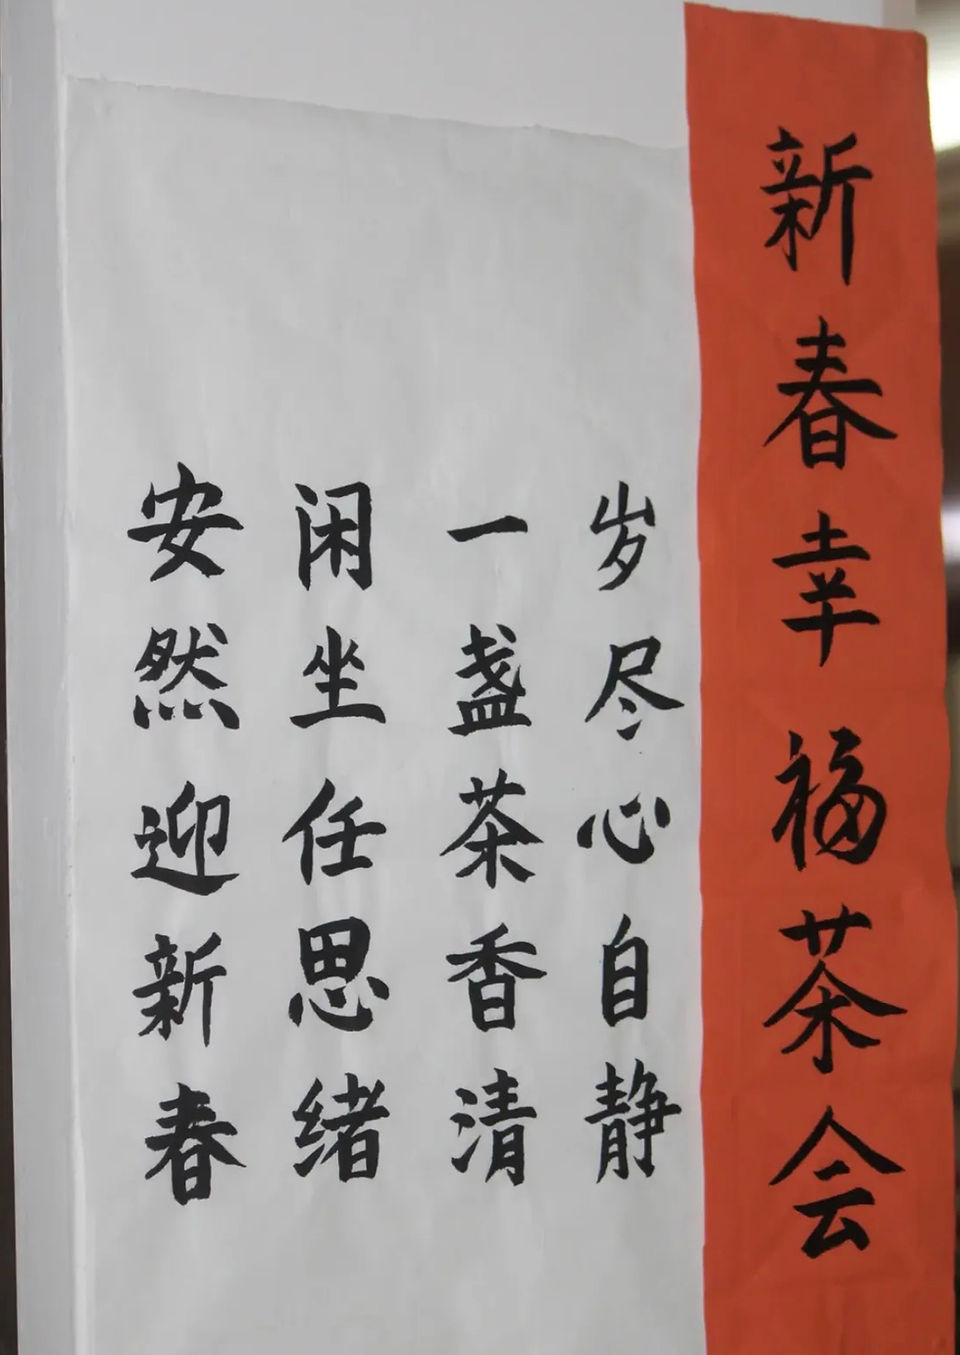 新春幸福茶会
岁尽心自静
一盏茶香清
闲坐任思绪
安然迎新春